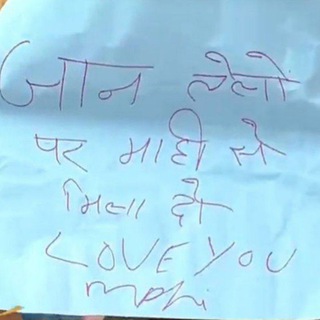 जान लेलो
पर माही से
मिला दो
LOVE YOU
mahi